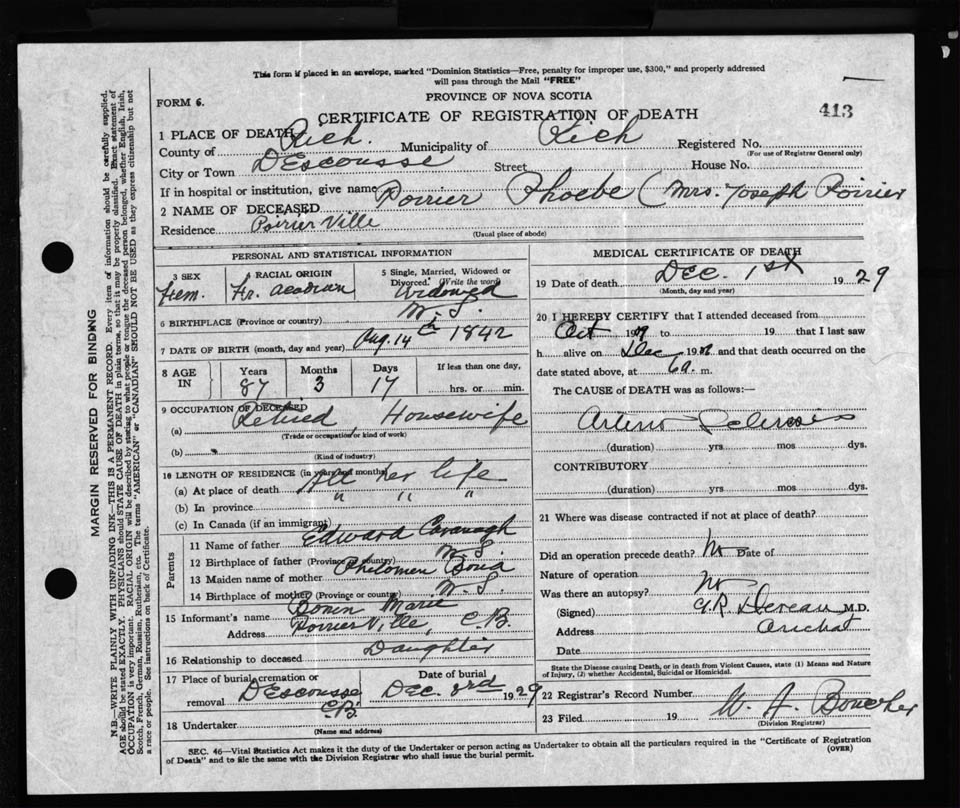 This form if placed in an envelope, marked "Dominion Statistics—Free, penalty for improper use, $300," and properly addressed
will pass through the Mail "FREE"
FORM 6.
PROVINCE OF NOVA SCOTIA
CERTIFICATE OF REGISTRATION OF DEATH
413
1 PLACE OF DEATH
County of Rich. Municipality of Rich Registered No.
(For use of Registrar General only)
City or Town DEscousse Street House No.
If in hospital or institution, give name
2 NAME OF DECEASED Poirier Phoebe (Mrs. Joseph Poirier
Residence Poirier Ville
(Usual place of abode)
PERSONAL AND STATISTICAL INFORMATION
3 SEX Fem.
4 RACIAL ORIGIN Fr. Acadian
5 Single, Married, Widowed or
Divorced. (Write the word)
Widowed
6 BIRTHPLACE (Province or country) N.S.
7 DATE OF BIRTH (month, day and year) Aug. 14th 1842
8 AGE IN Years 87 Months 3 Days 17 If less than one day, hrs. or min.
9 OCCUPATION OF DECEASED
(a) Retired, Housewife
(Trade or occupation or kind of work)
(b)
(Kind of industry)
10 LENGTH OF RESIDENCE (in years and months)
(a) At place of death All her life
(b) In province " " "
(c) In Canada (if an immigrant)
Parents
11 Name of father Edward Cavanagh
12 Birthplace of father (Province or country) N.S.
13 Maiden name of mother Philomen
14 Birthplace of mother (Province or country) N.S.
15 Informant's name Bonin Marie
Address Poirier Ville, C.B.
16 Relationship to deceased Daughter
17 Place of burial, cremation or removal DEscousse C.B.
Date of burial Dec. 3rd 1929
18 Undertaker
(Name and address)
MEDICAL CERTIFICATE OF DEATH
19 Date of death Dec. 1st 1929
(Month, day and year)
20 I HEREBY CERTIFY that I attended deceased from
Oct 19 to 19 that I last saw
h alive on Dec 19 and that death occurred on the
date stated above, at 6 a. m.
The CAUSE OF DEATH was as follows:—
Arterio Sclerosis
(duration) yrs mos dys.
CONTRIBUTORY
(duration) yrs mos dys.
21 Where was disease contracted if not at place of death?
Did an operation precede death? No Date of
Nature of operation
Was there an autopsy? No
(Signed) M.D.
Address Arichat
Date
State the Disease causing Death, or in death from Violent Causes, state (1) Means and Nature
of Injury, (2) whether Accidental, Suicidal or Homicidal.
22 Registrar's Record Number
23 Filed 19 W. A.
(Division Registrar)
SEC. 46—Vital Statistics Act makes it the duty of the Undertaker or person acting as Undertaker to obtain all the particulars required in the "Certificate of Registration
of Death" and to file the same with the Division Registrar who shall issue the burial permit.
(OVER)
MARGIN RESERVED FOR BINDING
N.B.—WRITE PLAINLY WITH UNFADING INK—THIS IS A PERMANENT RECORD. Every item of information should be carefully supplied.
AGE should be stated EXACTLY. PHYSICIANS should STATE CAUSE OF DEATH in plain terms, so that it may be properly classified. Exact statement of
OCCUPATION is very important. RACIAL ORIGIN will be described by stating to what people or tongue the deceased person belonged, whether English, Irish,
Scotch, French, German, Russian, Ruthenian, etc. The terms "AMERICAN" or "CANADIAN" SHOULD NOT BE USED as they express citizenship but not
a race or people. See instructions on back of Certificate.